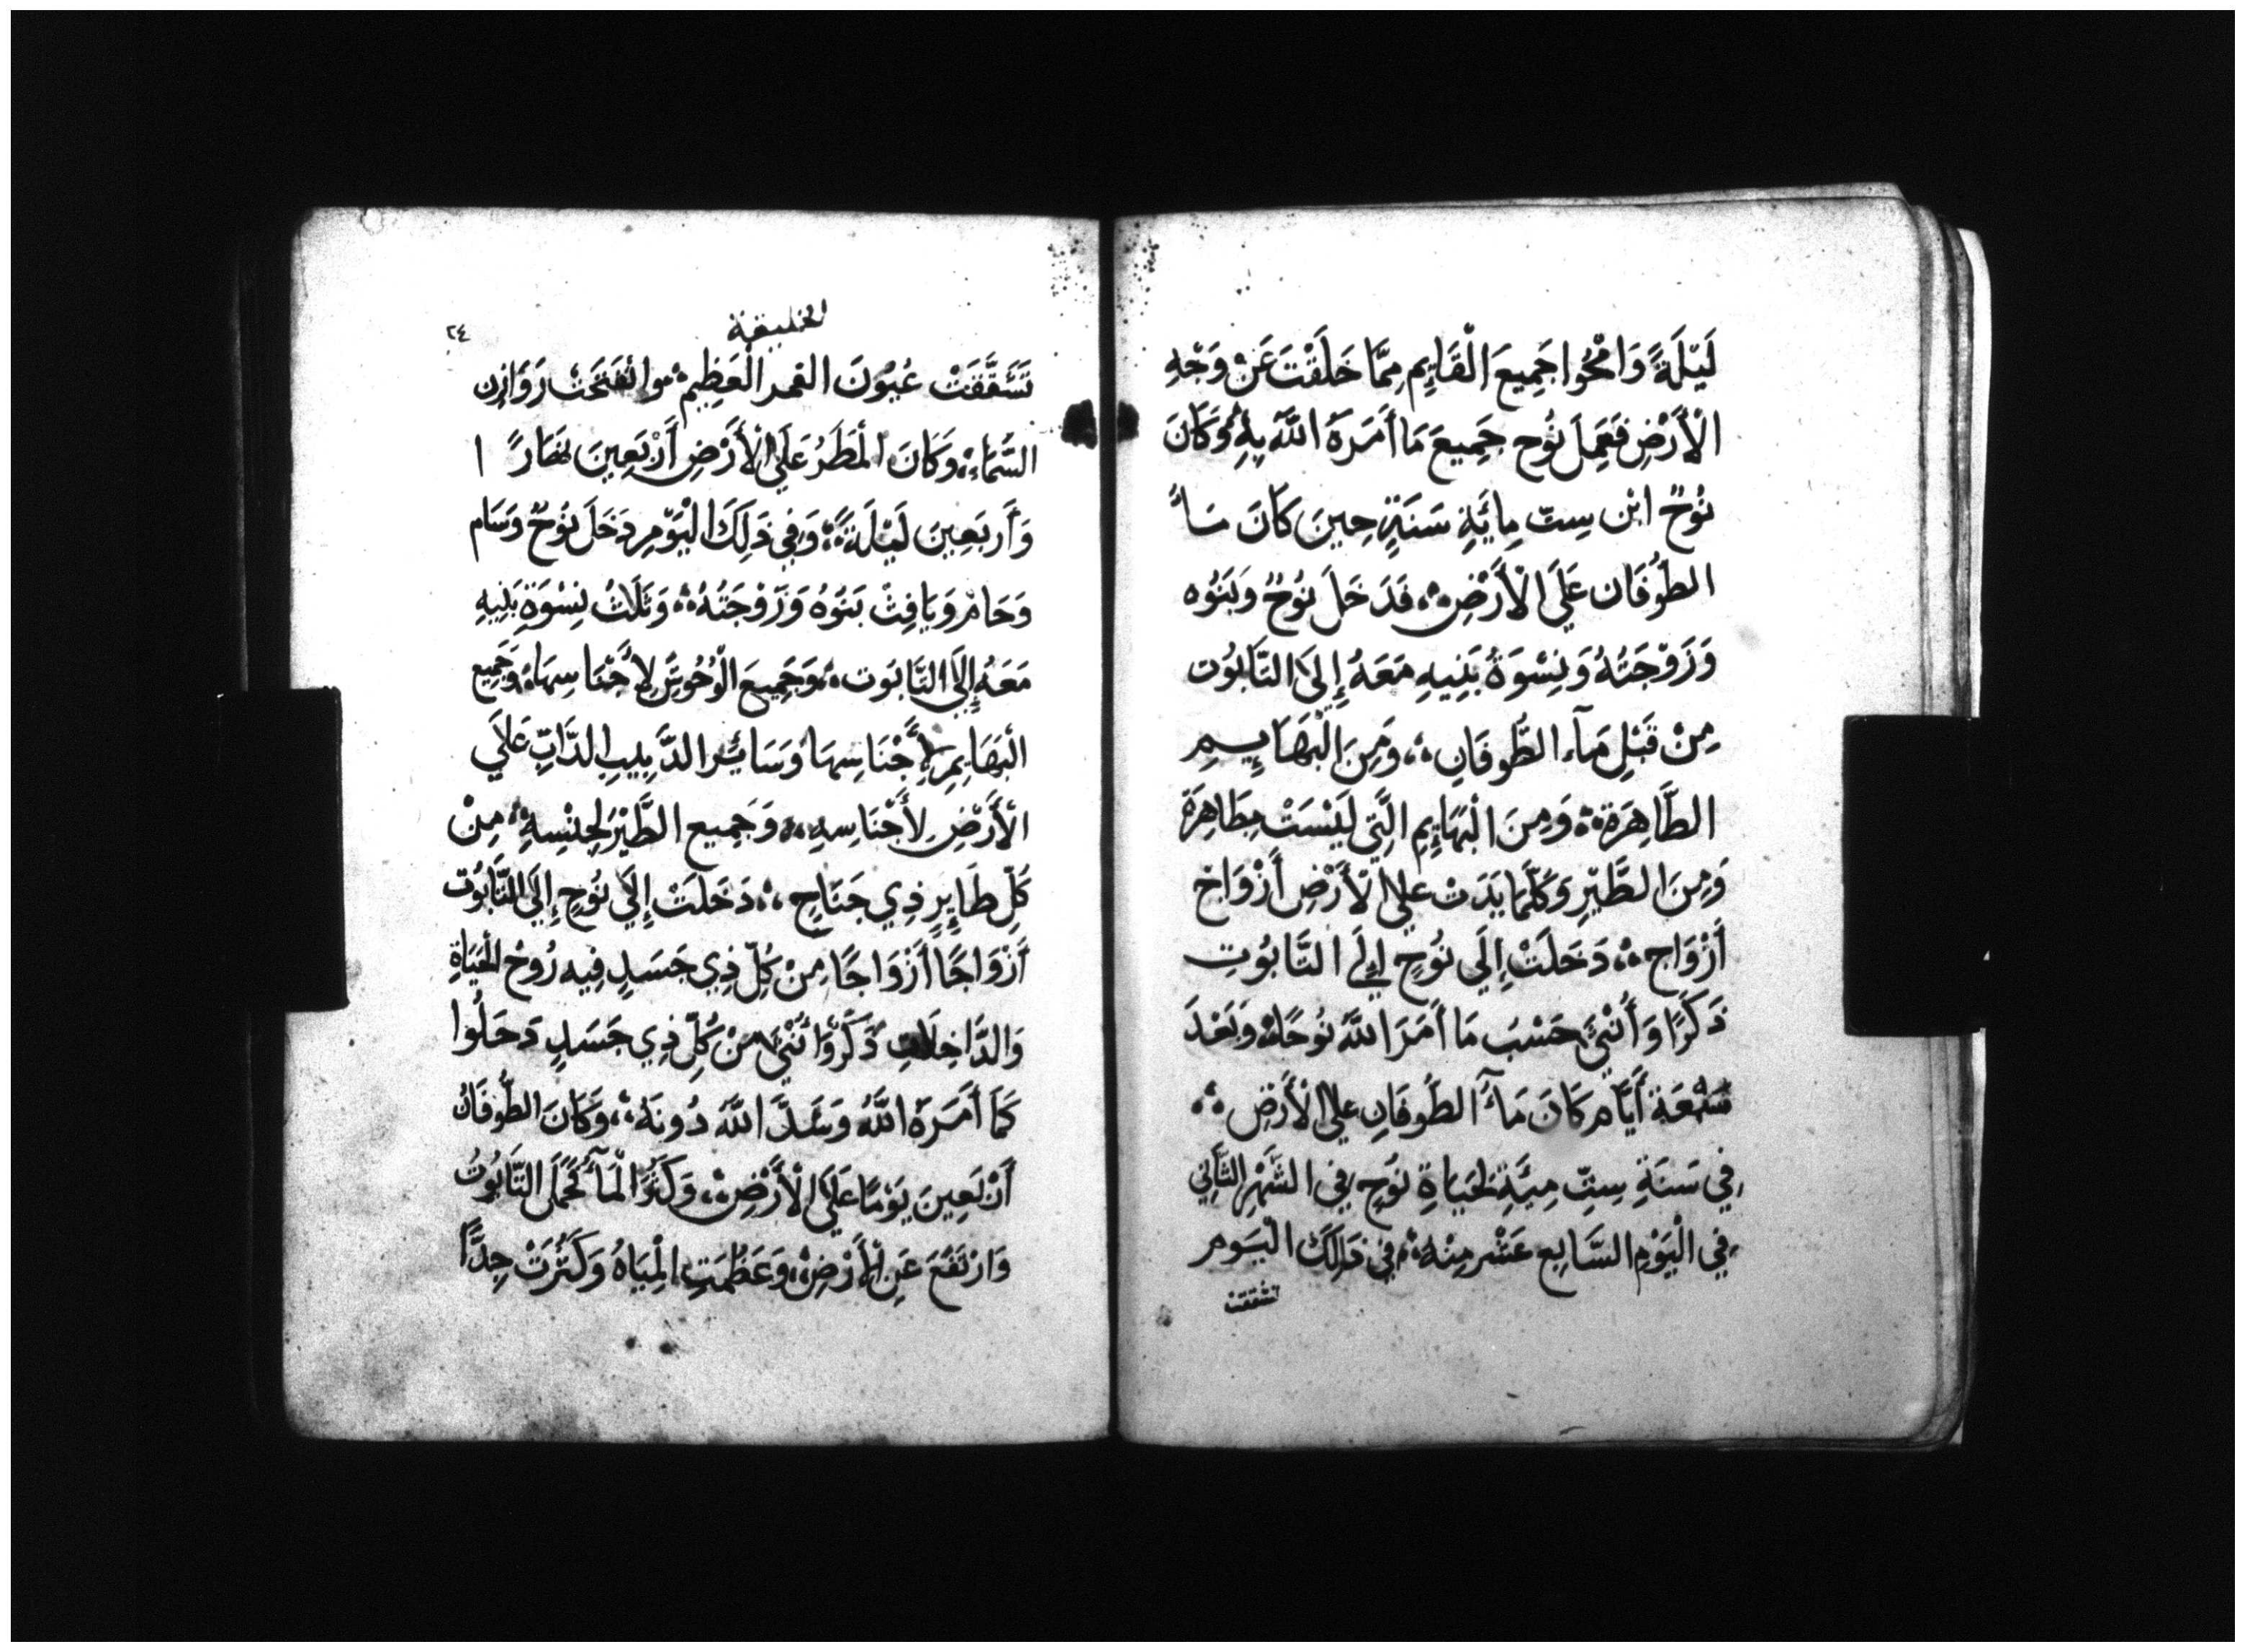 لَيْلَةً وَامْحُوا جَمِيعَ الْقَايِمِ مِمَّا خَلَقْتَ عَنْ وَجْهِ
الْأَرْضِ فَعَمِلَ نُوح جَمِيعَ مَا أَمَرَهُ اللَّهُ بِهِ وَكَانَ
نُوحٌ ابْن سِتّ مِايَةِ سَنَةٍ حِينَ كَانَ مَاءُ
الطُوفَان عَلَى الْأَرْضِ ؞ فَدَخَلَ نُوحٌ وَبَنُوه
وَزَوْجَتُهُ وَنِسْوَةُ بَنِيهِ مَعَهُ إِلَى التَّابُوت
مِنْ قَبْلِ مَآء الطُّوفَانِ ؞ وَمِنَ الْبَهَايِمِ
الطَّاهِرَة ؞ وَمِنَ الْبَهَايِمِ الَّتِي لَيْسَتْ بِطَاهِرَة
وَمِنَ الطَّيْرِ وَكُلَّمَا يَدَبّ عَلَى الْأَرْضِ أَزْوَاج
أَزْوَاج ؞ دَخَلَتْ إِلَى نُوحٍ إِلَى التَّابُوتِ
ذَكَرًا وَأُنْثَى حَسْبَ مَا أَمَرَ اللَّهُ نُوحًا ؞ وَبَعْدَ
سَبْعَة أَيَّام كَانَ مَآءُ الطُوفَانِ عَلَى الْأَرْضِ ؞
فِي سَنَةِ سِتِّ مِيَّةٍ لِحَيَاةِ نُوحٍ فِي الشَّهْرِ الثَّانِي
فِي الْيَوْمِ السَّابِع عَشْر مِنْهُ ؞ فِي ذَلِكَ الْيَوم
تشققت
الخليقة
٢٤
تَشَقَّقَتْ عُيُونَ الغمر الْعَظِيم ؞ وانْفَتَحَتْ رَوَازِن
السَّمَاءِ ؞ وَكَانَ الْمَطَرُ عَلَى الْأَرْضِ أَرْبَعِينَ نهَارًا
وَأَرْبَعِينَ لَيْلَةً ؞ وَفِي ذَلِكَ الْيَوْمِ دَخَلَ نُوحٌ وَسَام
وَحَام وَيَافِثْ بَنُوهُ وَزَوْجَتُهُ ؞ وَثَلَاثُ نِسْوَةِ بَنِيهِ
مَعَهُ إِلَى التَّابُوت ؞ وَجَمِيعَ الْوُحُوشِ لِأَجْنَاسِهَا ؞ وَجَمِيع
الْبَهَايِمِ لِأَجْنَاسِهَا وَسَائِر الدَّبِيبِ الدَّابِّ عَلَى
الْأَرْضِ لِأَجْنَاسِهِ ؞ وَجَمِيع الطَّيْر لِجِنْسِهِ ؞ مِنْ
كُلِّ طَايِرٍ ذِي جَنَاحٍ ؞ دَخَلَتْ إِلَى نُوحٍ إِلَى التَّابُوت
أَزْوَاجًا أَزْوَاجًا مِنْ كُلِّ ذِي جَسَدٍ فِيه رُوحُ الْحَيَاةِ
وَالدَّاخِلَاتِ ذَكَرٌ وَأُنْثَى مِنْ كُلِّ ذِي جَسَدٍ دَخَلُوا
كَمَا أَمَرَهُ اللَّهُ وَسَدَّ اللَّهُ دُونَهُ ؞ وَكَانَ الطُّوفَانُ
أَرْبَعِينَ يَوْمًا عَلَى الْأَرْضِ ؞ وَكَثُرَ الْمَآءُ فَحَمَلَ التَّابُوتُ
وَارْتَفَعَ عَنِ الْأَرْضِ ؞ وَعَظُمَتِ الْمِيَاهُ وَكَثُرَتْ جِدًّا